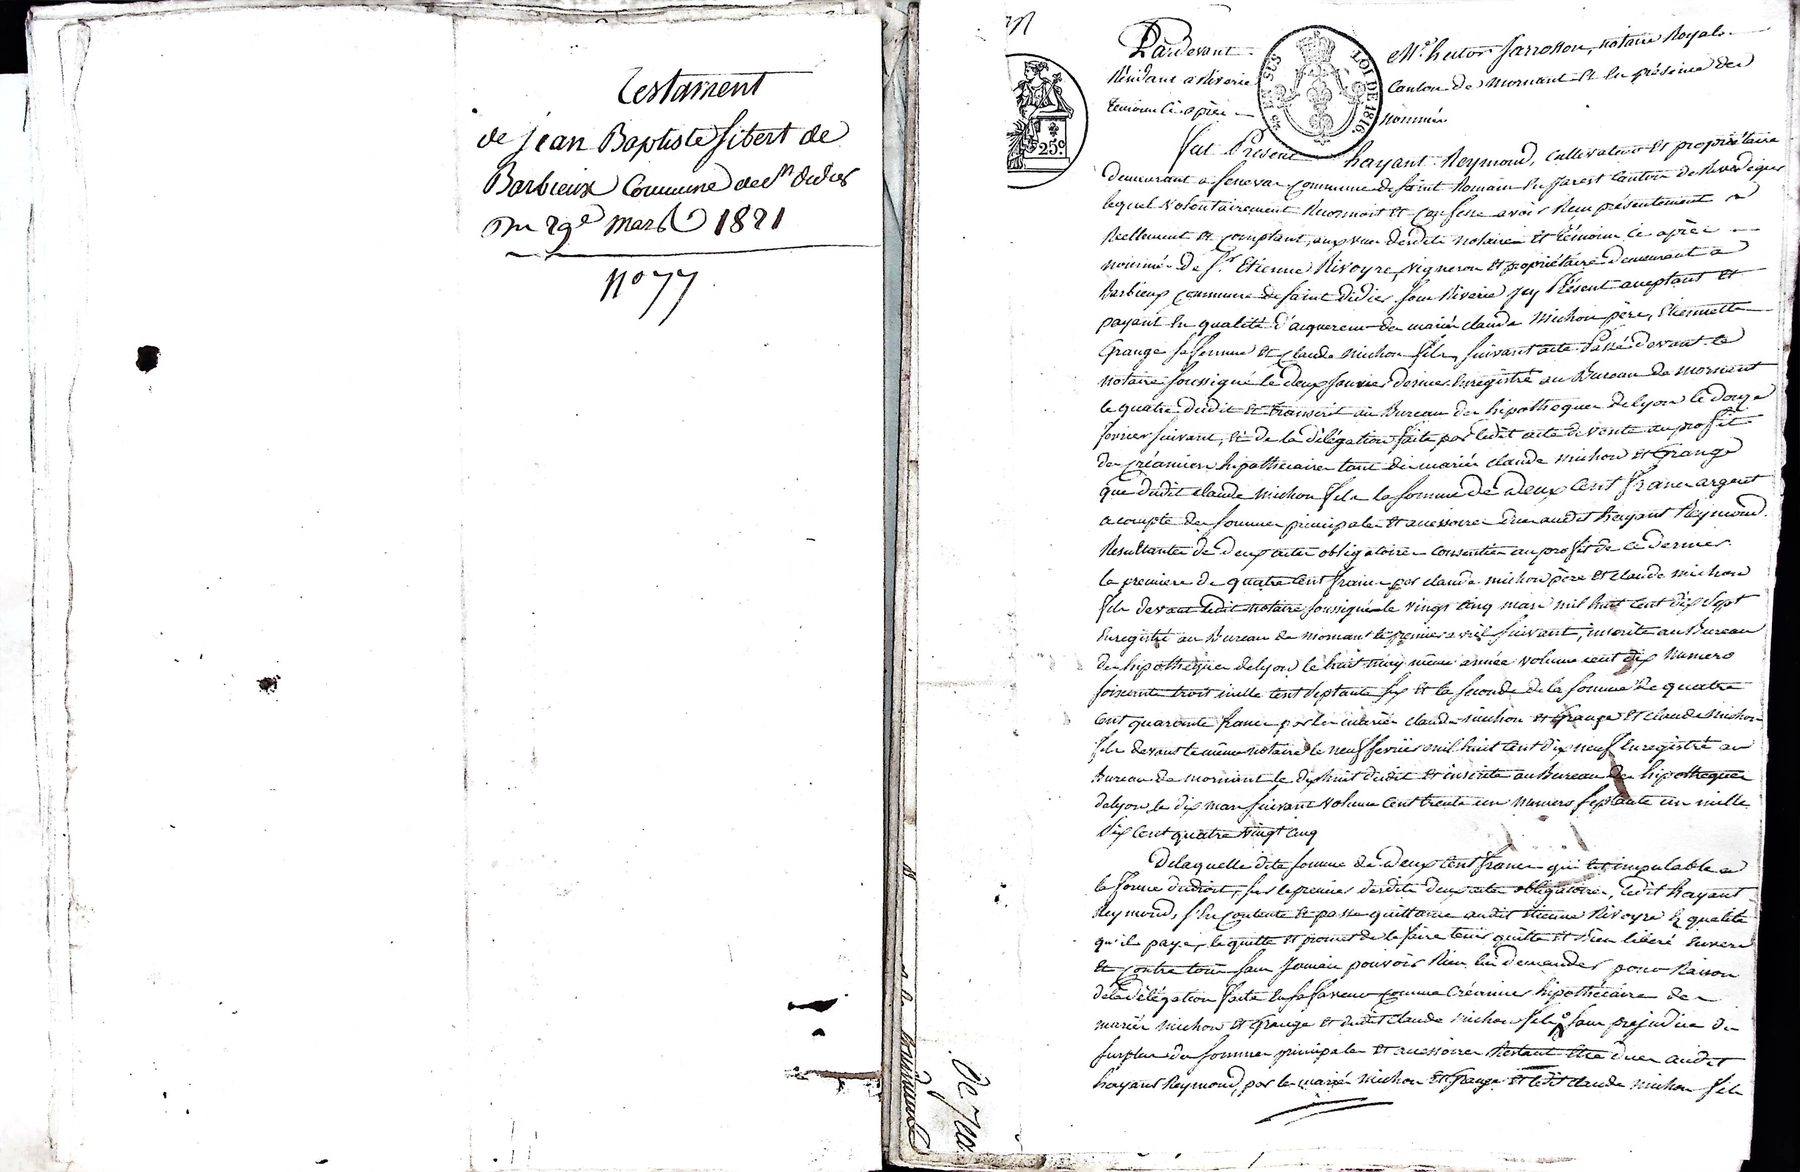 Testament
de Jean Baptiste Sibert de
Barbieux Commune de St didier
Du 29e Mars 1821
No 77
Pardevant Me hector Sarrosson, notaire Royal
Résidant a Riverie Canton de Mornant Et En présence des
témoins ci après nommés
25c
EN SUS
LOI DE 1816.
Fut Présent hayant Reymond, cultivateur et propriétaire
demeurant a Senevas commune de saint Romain En Jarest Canton de Rivedegier
lequel volontairement Reconnoit et confesse avoir Reçu présentement
Reellement et comptant, aux vues desdits notaire et témoins ci après
nommés de Sr. Etienne Rivoyre, vigneron et propriétaire demeurant a
Barbieux commune de saint didier sous Riverie icy Présent acceptant et
payant En qualité d'acquereur des mariés claude Michon père, Etiennette
Grange sa femme et Claude Michon fils, suivant acte Passé devant le
notaire soussigné le deux janvier dernier Enregistré au Bureau de mornant
le quatre dudit et transcrit au Bureau des hipotheques de lyon le douze
fevrier suivant, et de la délégation faite par ledit acte de vente au profit
des créanciers hipothécaires tant des mariés claude michon et Grange
que dudit claude michon fils la somme de deux Cent francs argent
a compte des sommes principales et accessoires dues audit hayant Reymond.
Resultantes de deux actes obligatoires consenties au profit de ce dernier.
la premiere de quatre cent francs par claude michon père et claude michon
fils devant ledit notaire soussigné le vingt cinq mars mil huit cent dix sept
Enregistré au Bureau de mornant le premier avril suivant, inscrite au Bureau
des hipotheques de lyon le huit may même année volume cent dix numero
soixante trois mille cent septante six et la seconde de la somme de quatre
cent quarante francs par les mariés claude michon et Grange et claude michon
fils devant le même notaire le neuf fevrier mil huit cent dix neuf Enregistré au
Bureau de mornant le dix huit dudit et inscrite au Bureau des hipotheques
de lyon le dix mars suivant volume cent trente un numero septante un mille
six cent quatre vingt cinq
De laquelle dite somme de deux cent francs qui est imputable a
la forme du droit, sur le premier desdits deux actes obligatoires, ledit hayant
Reymond, s'En contente et passe quittance audit etienne Rivoyre En qualité
qu'il paye, le quitte et promet de le faire tenir quitte et Bien libéré Envers
et contre tous sans jamais pouvoir Rien lui demander pour Raison
de la délégation faite En sa faveur comme créancier hipothécaire des
mariés michon et Grange et dudit claude michon fils, sans préjudice du
surplus des sommes principales et accessoires Restant Etre dues audit
hayant Reymond, par les mariés michon et Grange et ledit claude michon fils